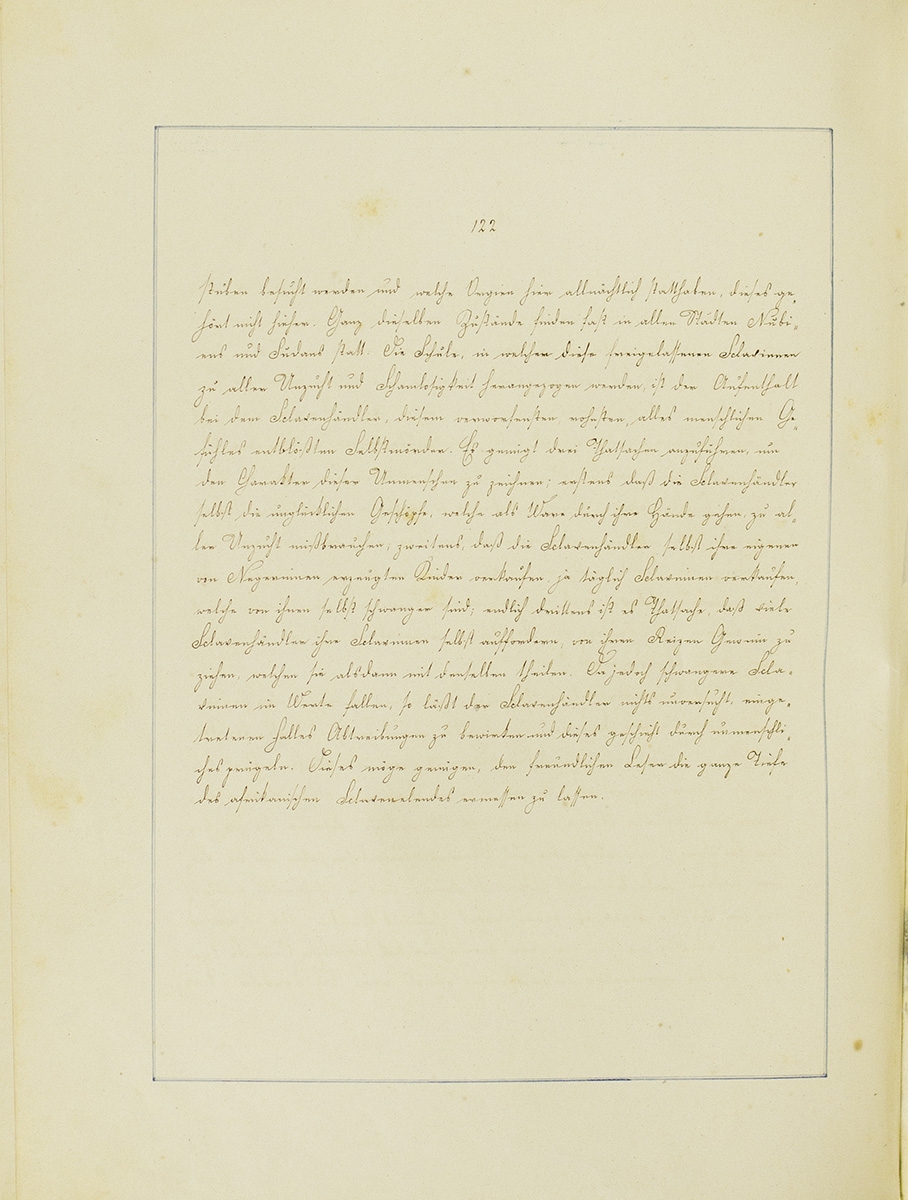 122
stuben besucht werden und welche Orgien hier allnächtlich statthaben, dieses ge-
hört nicht hieher. Ganz dieselben Zustände finden fast in allen Städten Nubi-
ens und Sudans statt. Die Schule, in welcher diese freigelassenen Sclavinnen
zu aller Unzucht und Schamlosigkeit herangezogen werden, ist der Aufenthalt
bei dem Sclavenhändler, diesem verworfensten, rohesten, alles menschlichen Ge-
fühles entblößten Selbstmörder. Es genügt drei Thatsachen anzuführen, um
den Charakter dieser Unmenschen zu zeichnen; erstens daß die Sclavenhändler
selbst die unglücklichen Geschöpfe, welche als Ware durch ihre Hände gehen, zu al-
ler Unzucht mißbrauchen; zweitens, daß die Sclavenhändler selbst ihre eigenen
von Negerinnen erzeugten Kinder verkaufen, ja täglich Sclavinnen verkaufen,
welche von ihnen selbst schwanger sind; endlich drittens ist es Thatsache, daß viele
Sclavenhändler ihre Sclavinnen selbst auffordern, von ihren Reizen Gewinn zu
ziehen, welchen sie alsdann mit denselben theilen. Da jedoch schwangere Scla-
vinnen im Werte fallen, so läßt der Sclavenhändler nichts unversucht, einge-
tretenen Falles Abtreibungen zu bewirken und dieses geschieht durch unmenschli-
ches prügeln. Dieses möge genügen, den freundlichen Leser die ganze Tiefe
des afrikanischen Sclavenelendes ermessen zu lassen.